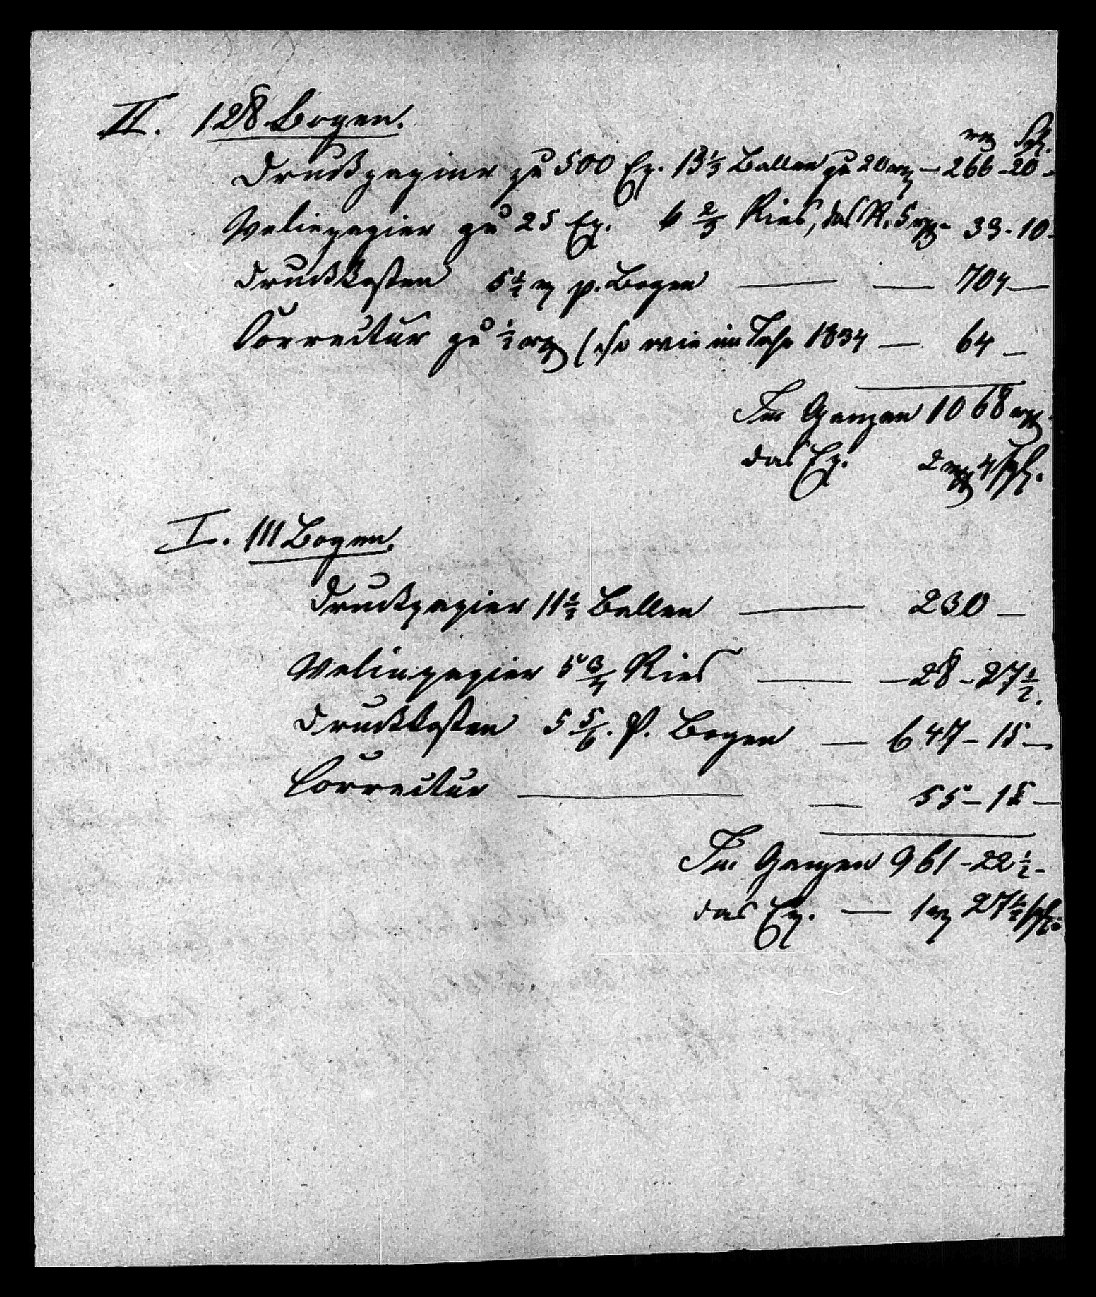 II. 128 Bogen.
rℓ Sgr.
Druckpapier zu 500 Ex. 13 1/3 Ballen zu 20 rℓ — 266 – 20 –
Velinpapier zu 25 Ex. 6 2/3 Ries, das R. 5 rℓ – 33 – 10 –
Druckkosten 5 1/2 rℓ p. Bogen — — 704 —
Correctur zu 1/2 rℓ (so wie im Jahr 1834 — 64 —
Im Ganzen 1068 rℓ.
das Ex. 2 rℓ 4 Sgr.
I. 111 Bogen.
Druckpapier 11 1/2 Ballen — 230 —
Velinpapier 5 3/4 Ries — — 28 – 27 1/2.
Druckkosten 5 5/6. p. Bogen — 647 – 15 —
Correctur — — 55 – 15 —
Im Ganzen 961 – 22 1/2 –
das Ex. — 1 rℓ 27 1/2 Sgr.